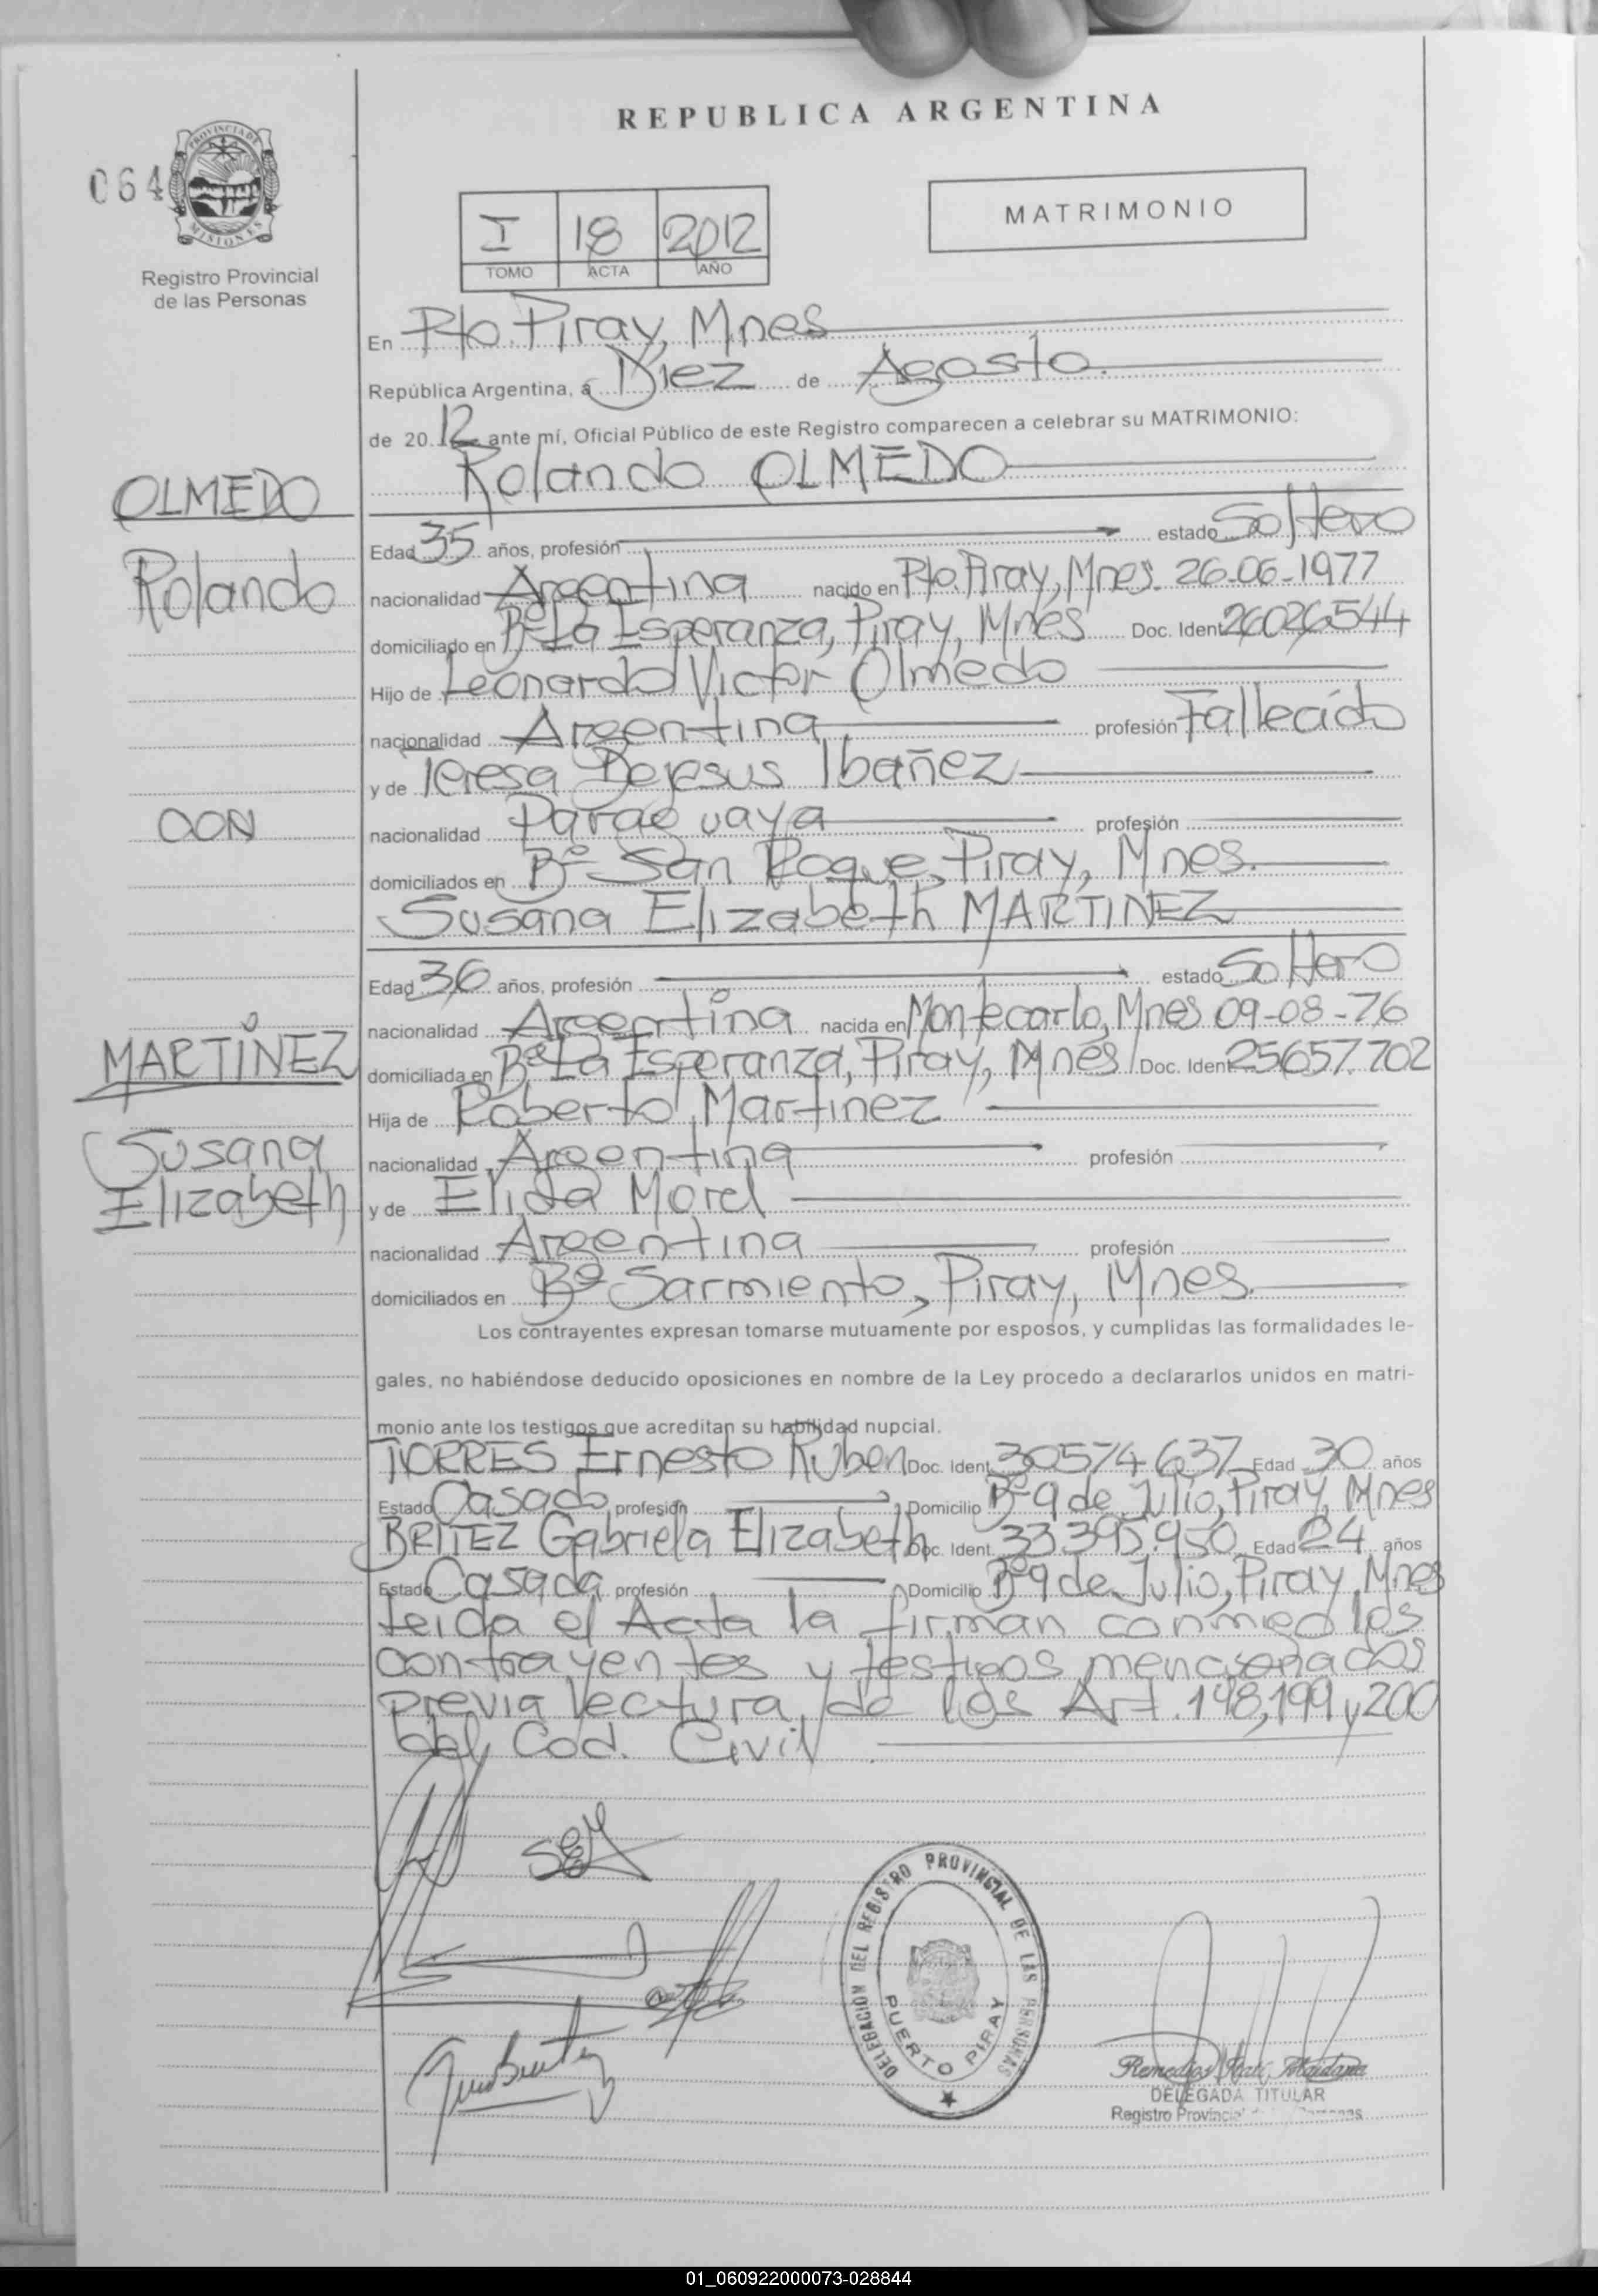 REPUBLICA ARGENTINA
064
PROVINCIA DE MISIONES
Registro Provincial
de las Personas
I 18 2012
TOMO ACTA AÑO
MATRIMONIO
En Pto. Piray, Mnes
República Argentina, a Diez de Agosto.
de 20 12 ante mí, Oficial Público de este Registro comparecen a celebrar su MATRIMONIO:
Rolando OLMEDO
OLMEDO
Edad 35 años, profesión estado Soltero
Rolando
nacionalidad Argentina nacido en Pto. Piray, Mnes. 26-06-1977
domiciliado en Bº La Esperanza, Piray, Mnes Doc. Ident 26026544
Hijo de Leonardo Victor Olmedo
nacionalidad Argentina profesión Fallecido
y de Teresa Dejesus Ibañez
CON
nacionalidad Paraguaya profesión
domiciliados en Bº San Roque, Piray, Mnes.
Susana Elizabeth MARTINEZ
Edad 36 años, profesión estado Soltero
nacionalidad Argentina nacida en Montecarlo, Mnes 09-08-76
MARTINEZ
domiciliada en Bº La Esperanza, Piray, Mnes Doc. Ident 25657.702
Hija de Roberto Martinez
Susana
nacionalidad Argentina profesión
Elizabeth
y de Elida Morel
nacionalidad Argentina profesión
domiciliados en Bº Sarmiento, Piray, Mnes.
Los contrayentes expresan tomarse mutuamente por esposos, y cumplidas las formalidades le-
gales, no habiéndose deducido oposiciones en nombre de la Ley procedo a declararlos unidos en matri-
monio ante los testigos que acreditan su habilidad nupcial.
TORRES Ernesto Ruben Doc. Ident. 30574.637 Edad 30 años
Estado Casado profesión Domicilio Bº 9 de Julio, Piray, Mnes
BRITEZ Gabriela Elizabeth Doc. Ident. 33.395.950 Edad 24 años
Estado Casada profesión Domicilio Bº 9 de Julio, Piray, Mnes
Leida el Acta la firman conmigo los
contrayentes y testigos mencionados
previa lectura de los Art. 198,199 y 200
del Cod. Civil
DELEGACION DEL REGISTRO PROVINCIAL DE LAS PERSONAS
PUERTO PIRAY
Remedios Maidana
DELEGADA TITULAR
Registro Provincial
01_060922000073-028844